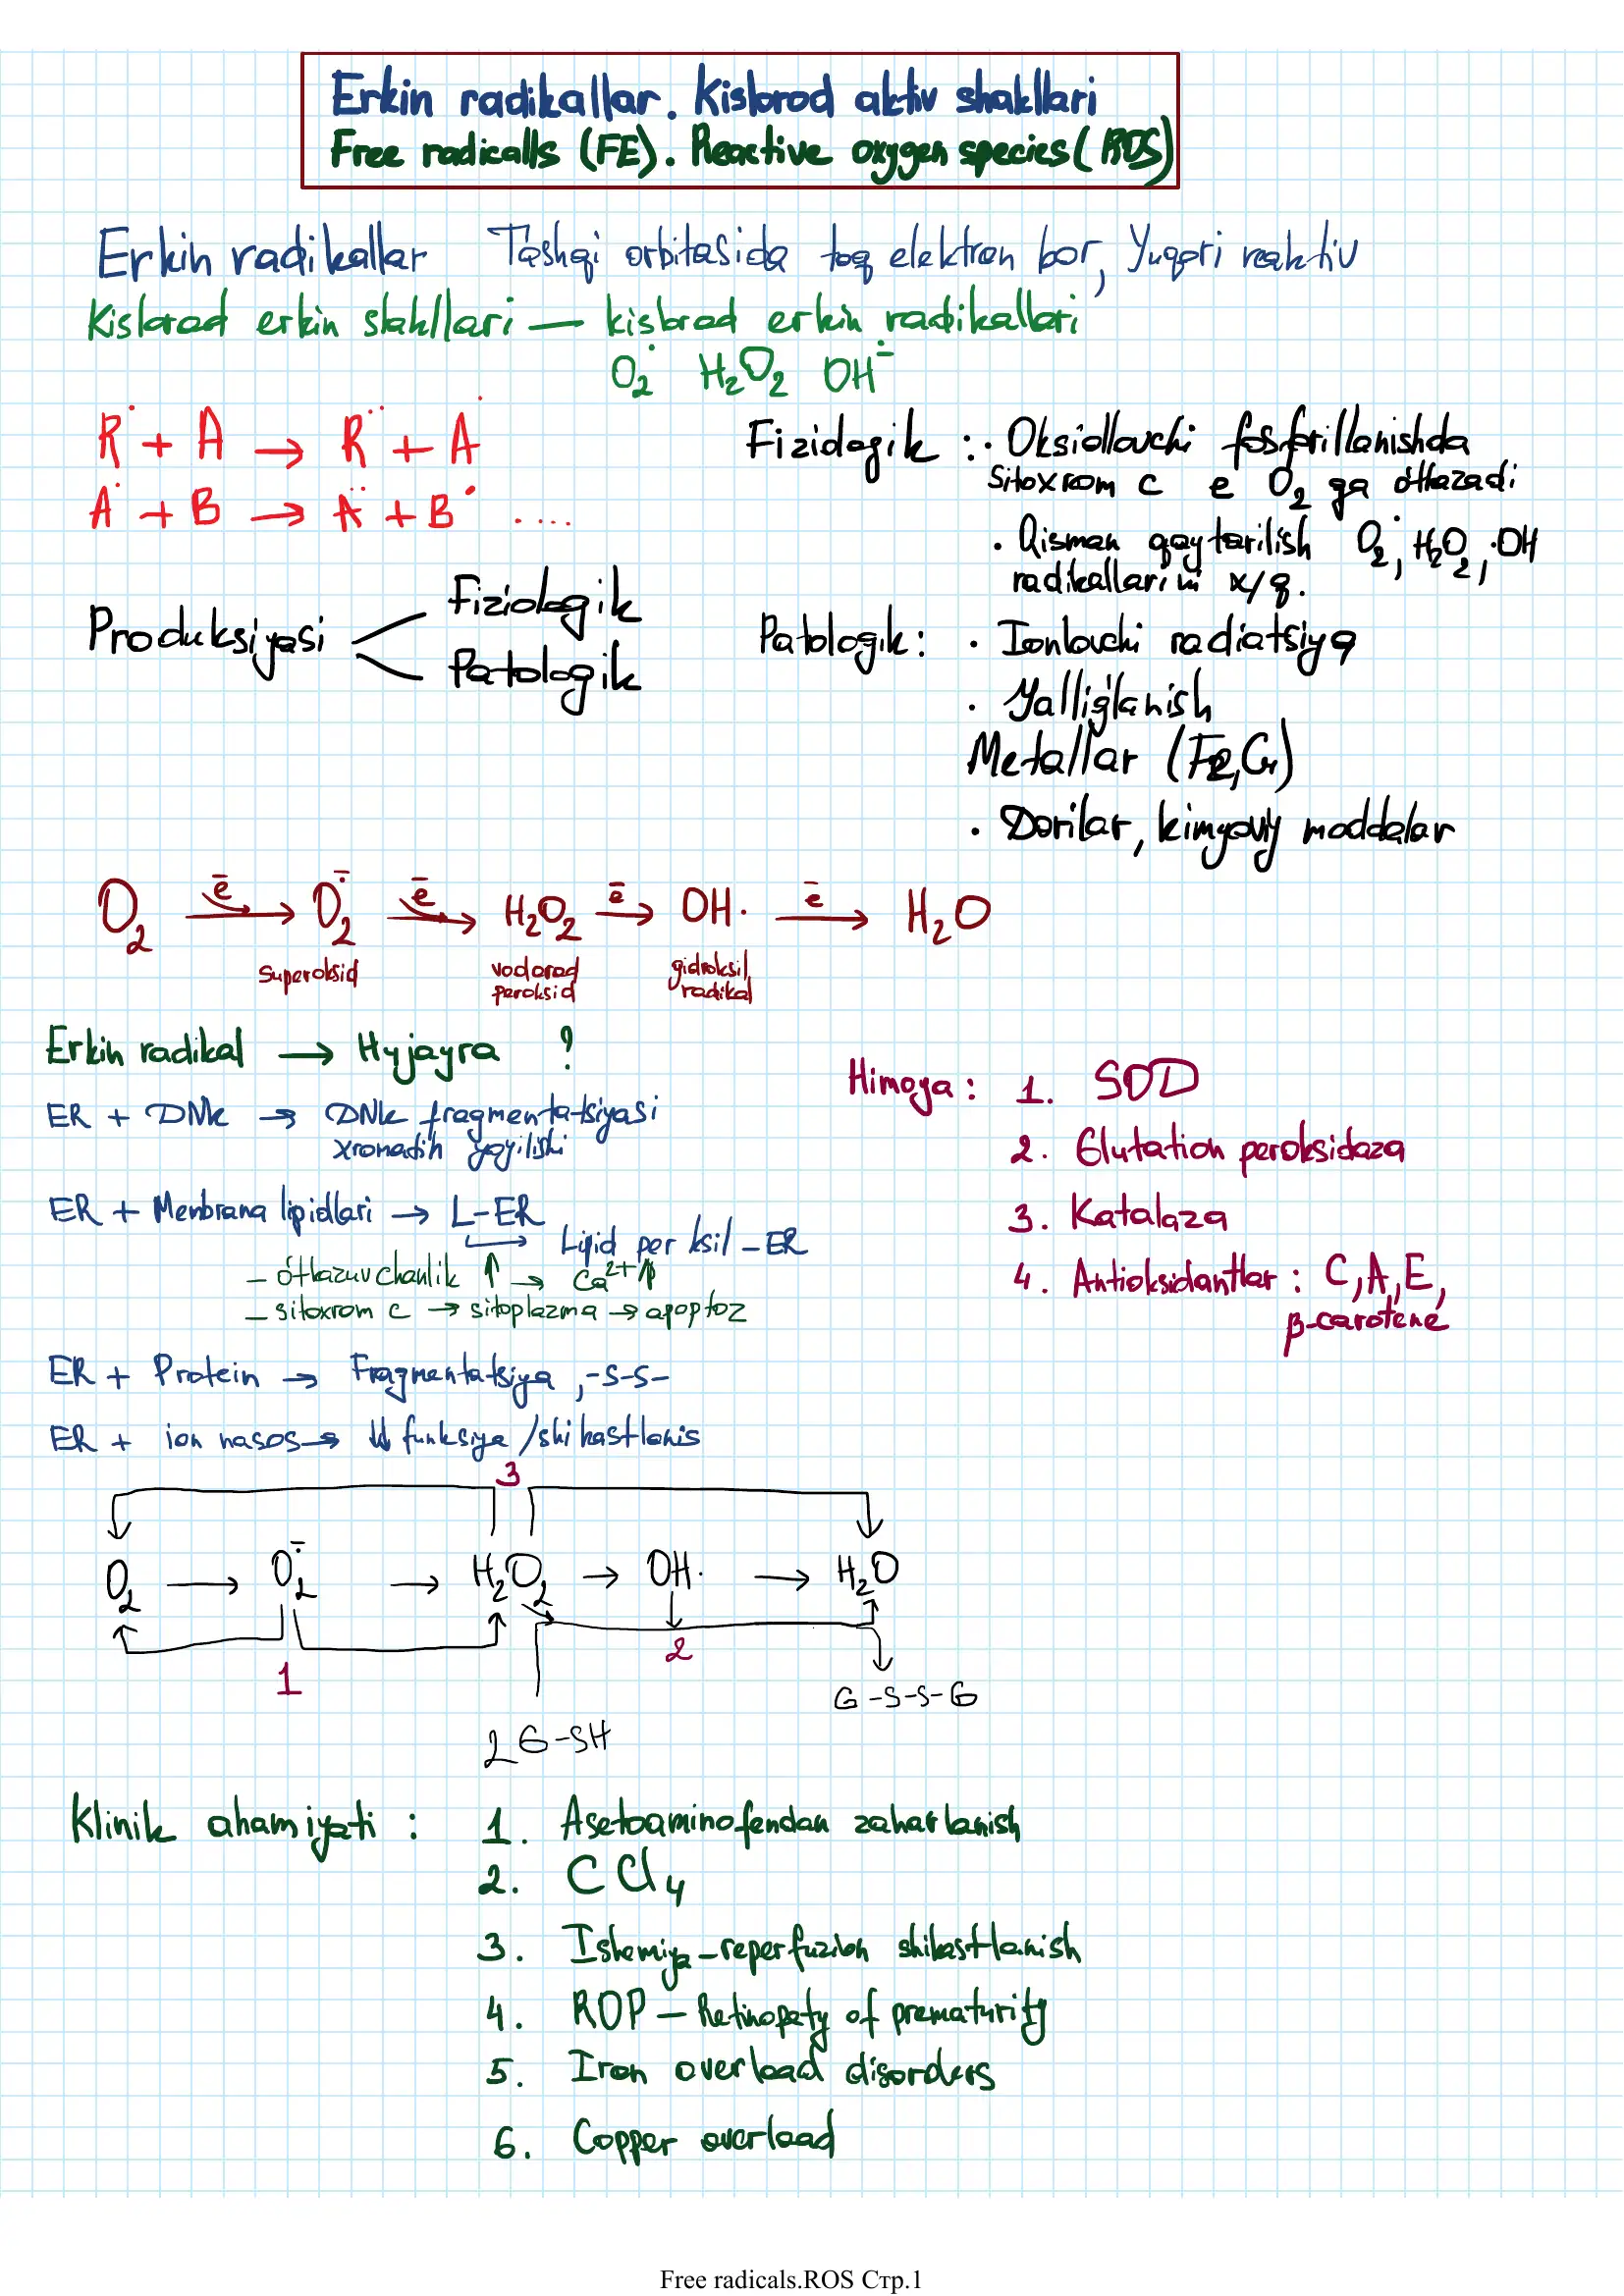 Erkin radikallar. Kislorod aktiv shakllari
Free radicalls (FE). Reactive oxygen species (ROS)
Erkin radikallar Tashqi orbitasida toq elektron bor, Yuqori reaktiv
Kislorod erkin shakllari — kislorod erkin radikallari
O₂˙ H₂O₂ OH˙̄
R˙ + A → R¨ + A˙
A˙ + B → A¨ + B˙ ....
Produksiyasi
Fiziologik
Patologik
Fiziologik : • Oksidlovchi fosforillanishda
Sitoxrom c e O₂ ga o'tkazadi
• Qisman qaytarilish O₂˙, H₂O₂, ·OH
radikallarini x/q.
Patologik : • Ionlovchi radiatsiya
• Yallig'lanish
Metallar (Fe, Cu)
• Dorilar, kimyoviy moddalar
O₂ —ē→ O₂˙̄ —ē→ H₂O₂ —ē→ OH· —ē→ H₂O
Superoksid
vodorod
peroksid
gidroksil
radikal
Erkin radikal → Hyjayra ?
ER + DNK → DNK fragmentatsiyasi
xromatin yoyilishi
ER + Menbrana lipidlari → L-ER
Lipid per ksil - ER
- o'tkazuvchanlik ↑ → Ca²⁺ ⇑
- sitoxrom c → sitoplazma → apoptoz
ER + Protein → Fragmentatsiya, -S-S-
ER + ion nasos → ⇓ funksiya / shikastlanis
Himoya : 1. SOD
2. Glutation peroksidaza
3. Katalaza
4. Antioksidantlar : C, A, E,
β-carotene
3
O₂ → O₂˙̄ → H₂O₂ → OH· → H₂O
1
2
G-S-S-G
2 G-SH
Klinik ahamiyati : 1. Asetoaminofendan zaharlanish
2. CCl₄
3. Ishemiya-reperfuzion shikastlanish
4. ROP - Retinopaty of prematurity
5. Iron overload disorders
6. Copper overload
Free radicals.ROS Стр.1